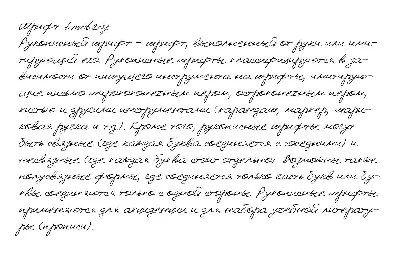 Шрифт
Рукописный шрифт – шрифт, выполненный от руки или ими-
тирующий его. Рукописные шрифты классифицируются в за-
висимости от пишущего инструмента на шрифты, имитирую-
щие письмо ширококонечным пером, остроконечным пером,
кистью и другими инструментами (карандаш, маркер, шари-
ковая ручка и т.д.). Кроме того, рукописные шрифты могут
быть связные (где каждая буква соединяется с соседними) и
несвязные (где каждая буква стоит отдельно). Возможны также
полусвязные формы, где соединяется только часть букв или бу-
квы соединяются только с одной стороны. Рукописные шрифты
применяются для акциденции и для набора учебной литерату-
ры (прописи).